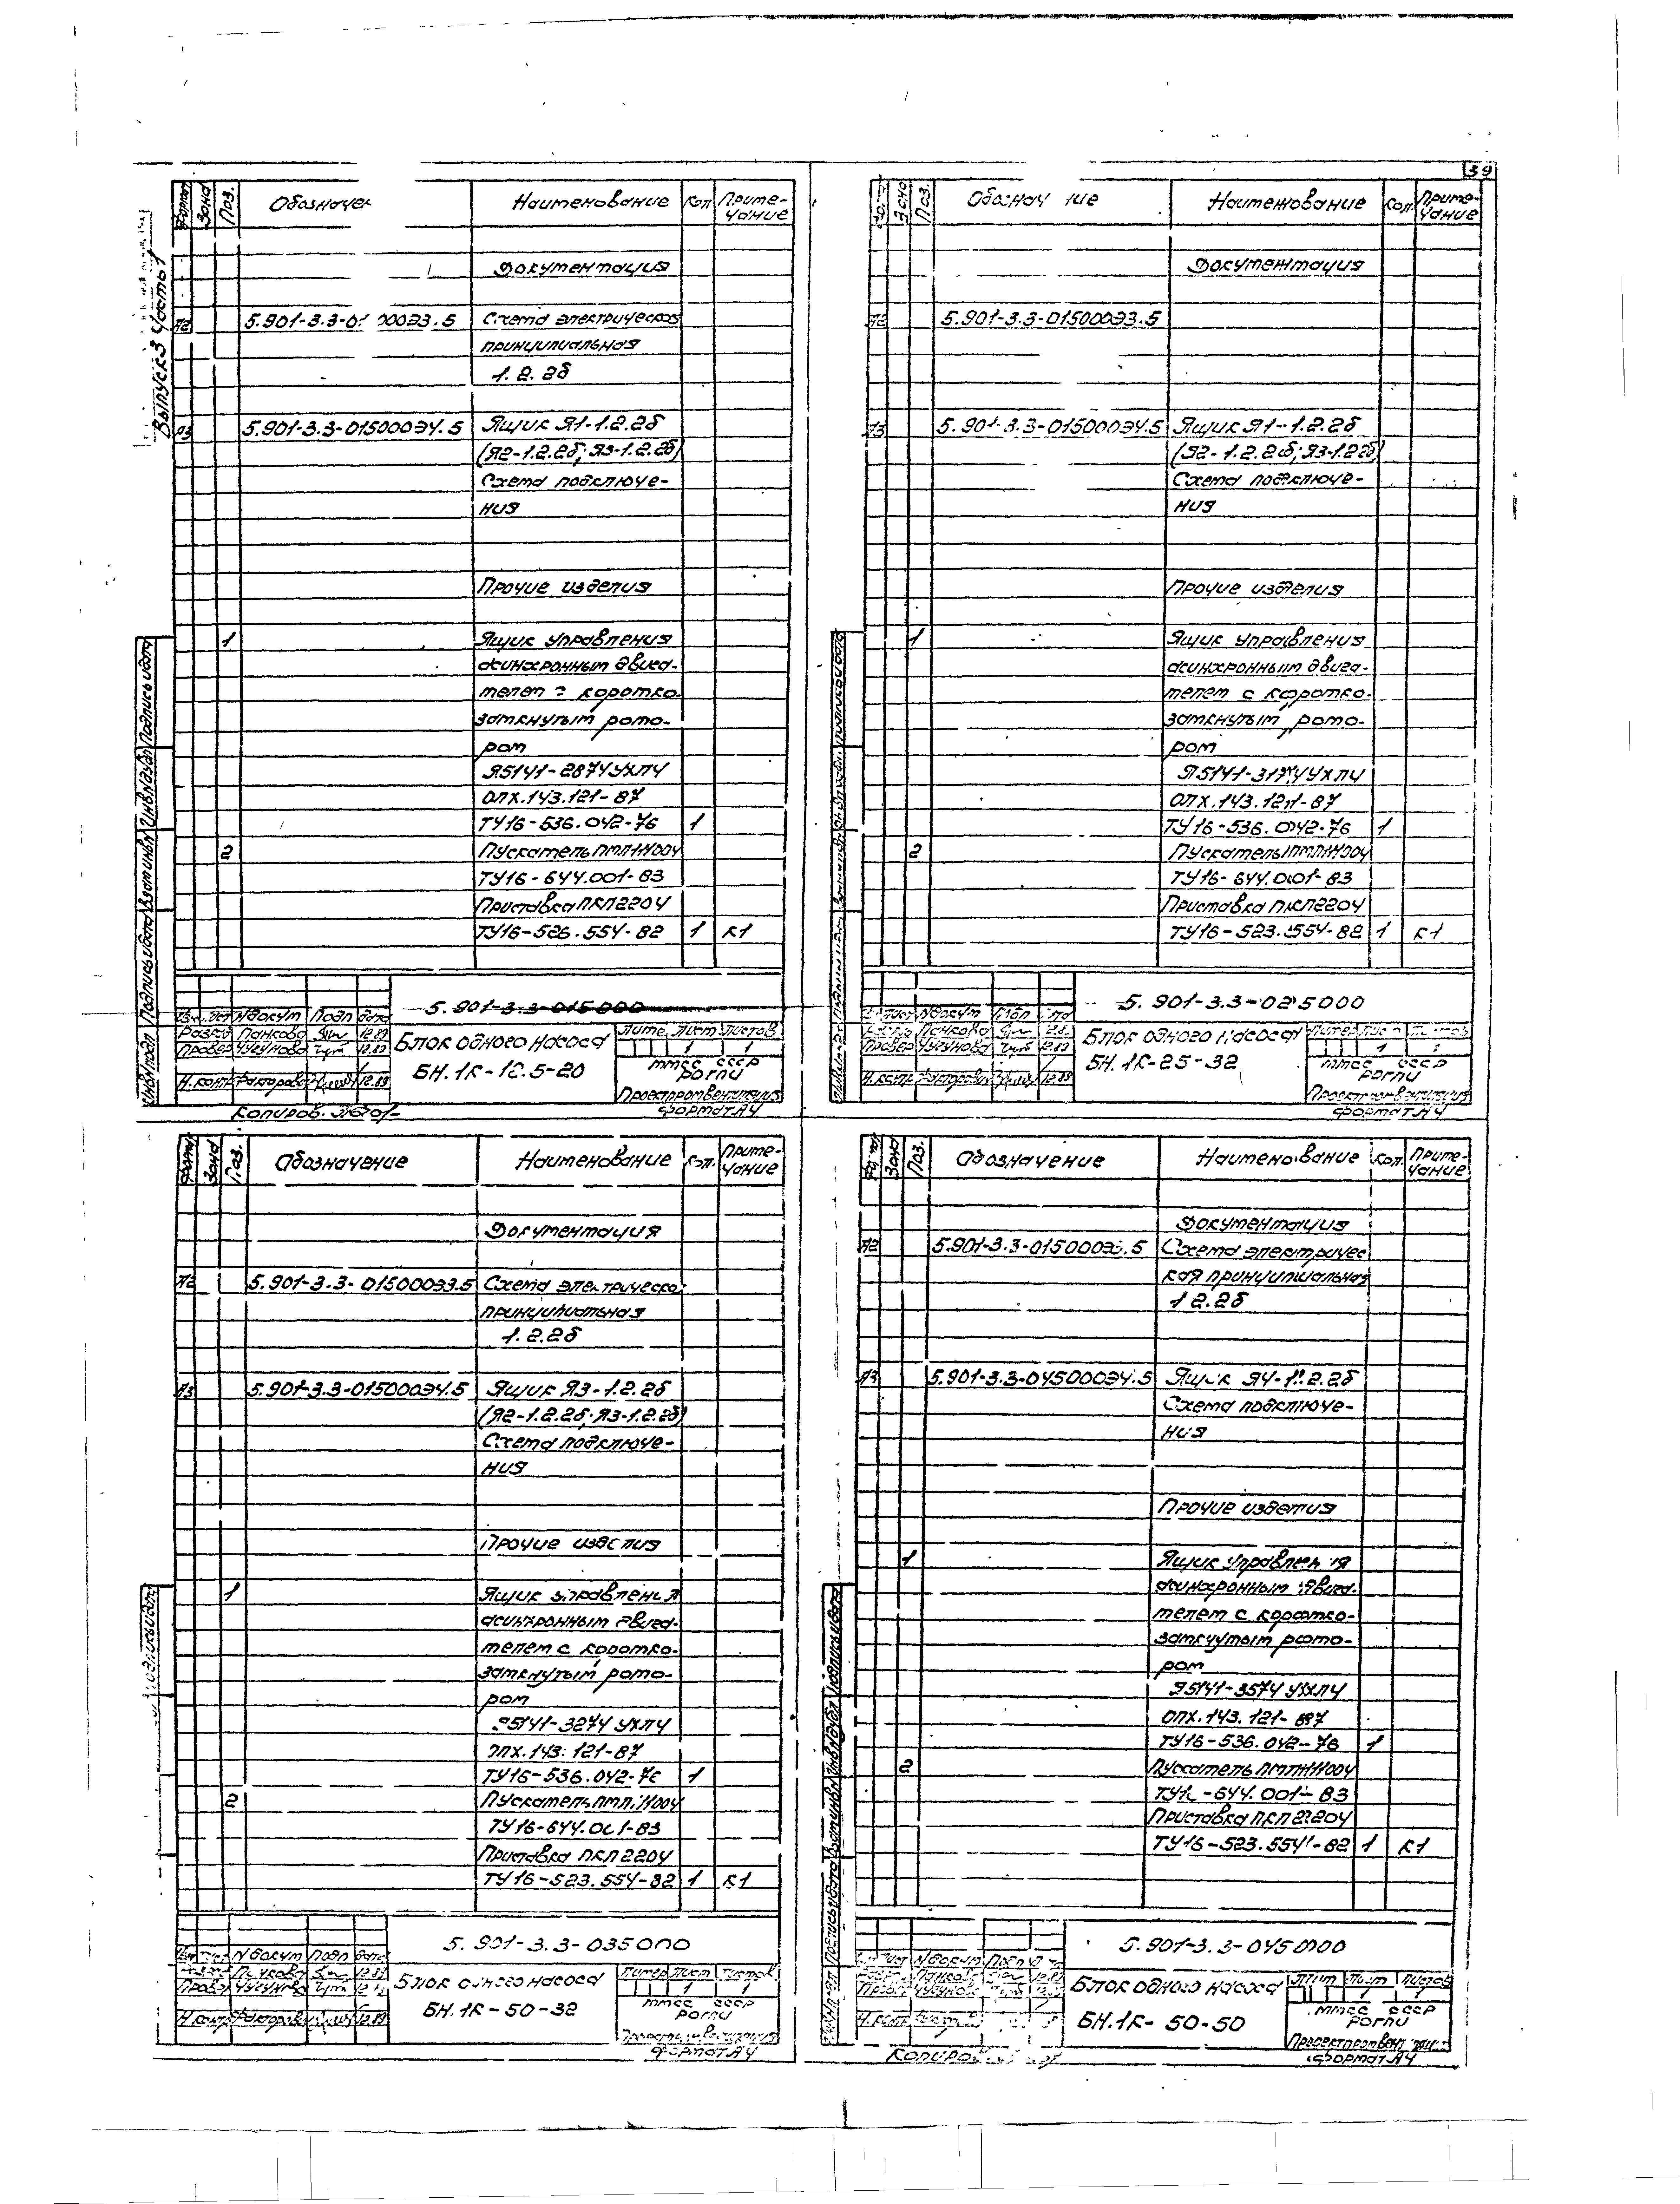 39
Выпуск 3 Часть 1
Формат Зона Поз. Наименование Кол Приме-
чание
Документация
А2 Схема электрическая
принципиальная
1.2.2б
А3 5.901-3.3-015000Э4.5 Ящик Я1-1.2.2б
(Я2-1.2.2б; Я3-1.2.2б)
Схема подключе-
ния
Прочие изделия
1 Ящик управления
асинхронным двига-
телем с коротко-
замкнутым рото-
ром
Я5141-2874УХЛ4
ОЛХ.143.121-87
ТУ16-536.042-76 1
2 Пускатель ПМЛ-11004
ТУ16-644.001-83
Приставка ПКЛ2204
ТУ16-526.554-82 1 К1
5.901-3.3-015000
Изм. Лист N докум Подп Дата
Разраб Панкова 12.89
Провер Чугунова 12.89
Н.контр Факторов 12.89
Блок одного насоса
БН.1К-12.5-20
Литер Лист Листов
1 1
ММСС СССР
РОГПИ
Проектпромвентиляция
Копиров.
Формат А4
Инв N подл Подпись и дата Взам инв N Инв N дубл Подпись и дата
Зона Поз. Наименование Кол. Приме-
чание
Документация
А2 5.901-3.3-015000Э3.5
А3 5.901-3.3-015000Э4.5 Ящик Я1-1.2.2б
(Я2-1.2.2б; Я3-1.2.2б)
Схема подключе-
ния
Прочие изделия
1 Ящик управления
асинхронным двига-
телем с коротко-
замкнутым рото-
ром
ОЛХ.143.121-87
ТУ16-536.042-76 1
2 Пускатель ПМЛ-11004
ТУ16-644.001-83
Приставка ПКЛ2204
ТУ16-523.554-82 1 К1
5.901-3.3-025000
Лист N докум Подп Дата
Панкова 12.89
Провер Чугунова 12.89
Н.контр Факторов 12.89
Блок одного насоса
БН.1К-25-32
Литер Лист Листов
1 1
ММСС СССР
РОГПИ
Проектпромвентиляция
Формат А4
Формат Зона Поз. Обозначение Наименование Кол. Приме-
чание
Документация
А2 5.901-3.3-015000Э3.5 Схема электрическа
принципиальная
1.2.2б
А3 5.901-3.3-015000Э4.5 Ящик Я3-1.2.2б
(Я2-1.2.2б; Я3-1.2.2б)
Схема подключе-
ния
Прочие изделия
1 Ящик управления
асинхронным двига-
телем с коротко-
замкнутым рото-
ром
Я5141-3274 УХЛ4
ОЛХ.143.121-87
ТУ16-536.042-76 1
2 Пускатель ПМЛ-11004
ТУ16-644.001-83
Приставка ПКЛ2204
ТУ16-523.554-82 1 К1
5.901-3.3-035000
N докум Подп Дата
Панкова 12.89
Провер Чугунова
Н.контр Факторов 12.89
Блок одного насоса
БН.1К-50-32
Литер Лист Листов
1 1
ММСС СССР
РОГПИ
Формат А4
Зона Поз. Обозначение Наименование Кол. Приме-
чание
Документация
А2 5.901-3.3-015000Э3.5 Схема электричес
кая принципиальная
1 2.2б
А3 5.901-3.3-045000Э4.5 Ящик Я4-1.2.2б
Схема подключе-
ния
Прочие изделия
1 Ящик управления
асинхронным двига-
телем с коротко-
замкнутым рото-
ром
Я5141-3574 УХЛ4
ОЛХ.143.121-87
ТУ16-536.042-76 1
2 Пускатель ПМЛ-11004
ТУ16-644.001-83
Приставка ПКЛ2204
ТУ16-523.554-82 1 К1
5.901-3.3-045000
Блок одного насоса
БН.1К-50-50
Лист Листов
1 1
ММСС СССР
РОГПИ
Копиров.
Формат А4